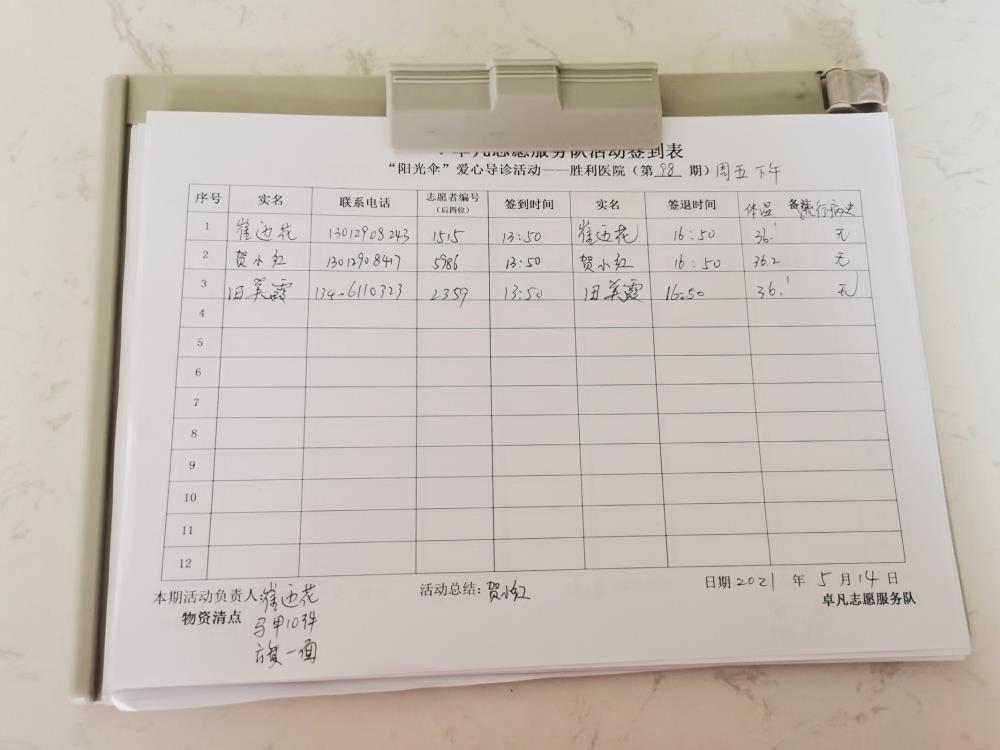 卓凡志愿服务队活动签到表
“阳光伞”爱心导诊活动——胜利医院（第 98 期）周五下午
序号 实名 联系电话 志愿者编号（后四位） 签到时间 实名 签退时间 体温 备注 流行病史
1 崔迎花 13012908243 1515 13:50 崔迎花 16:50 36.1 无
2 贺小红 13012908417 5986 13:50 贺小红 16:50 36.2 无
3 田英霞 134 6110323 2359 13:50 田英霞 16:50 36.1 无
4
5
6
7
8
9
10
11
12
本期活动负责人: 崔迎花 活动总结: 贺小红 日期 2021 年 5 月 14 日
物资清点 马甲10件 卓凡志愿服务队
旗一面